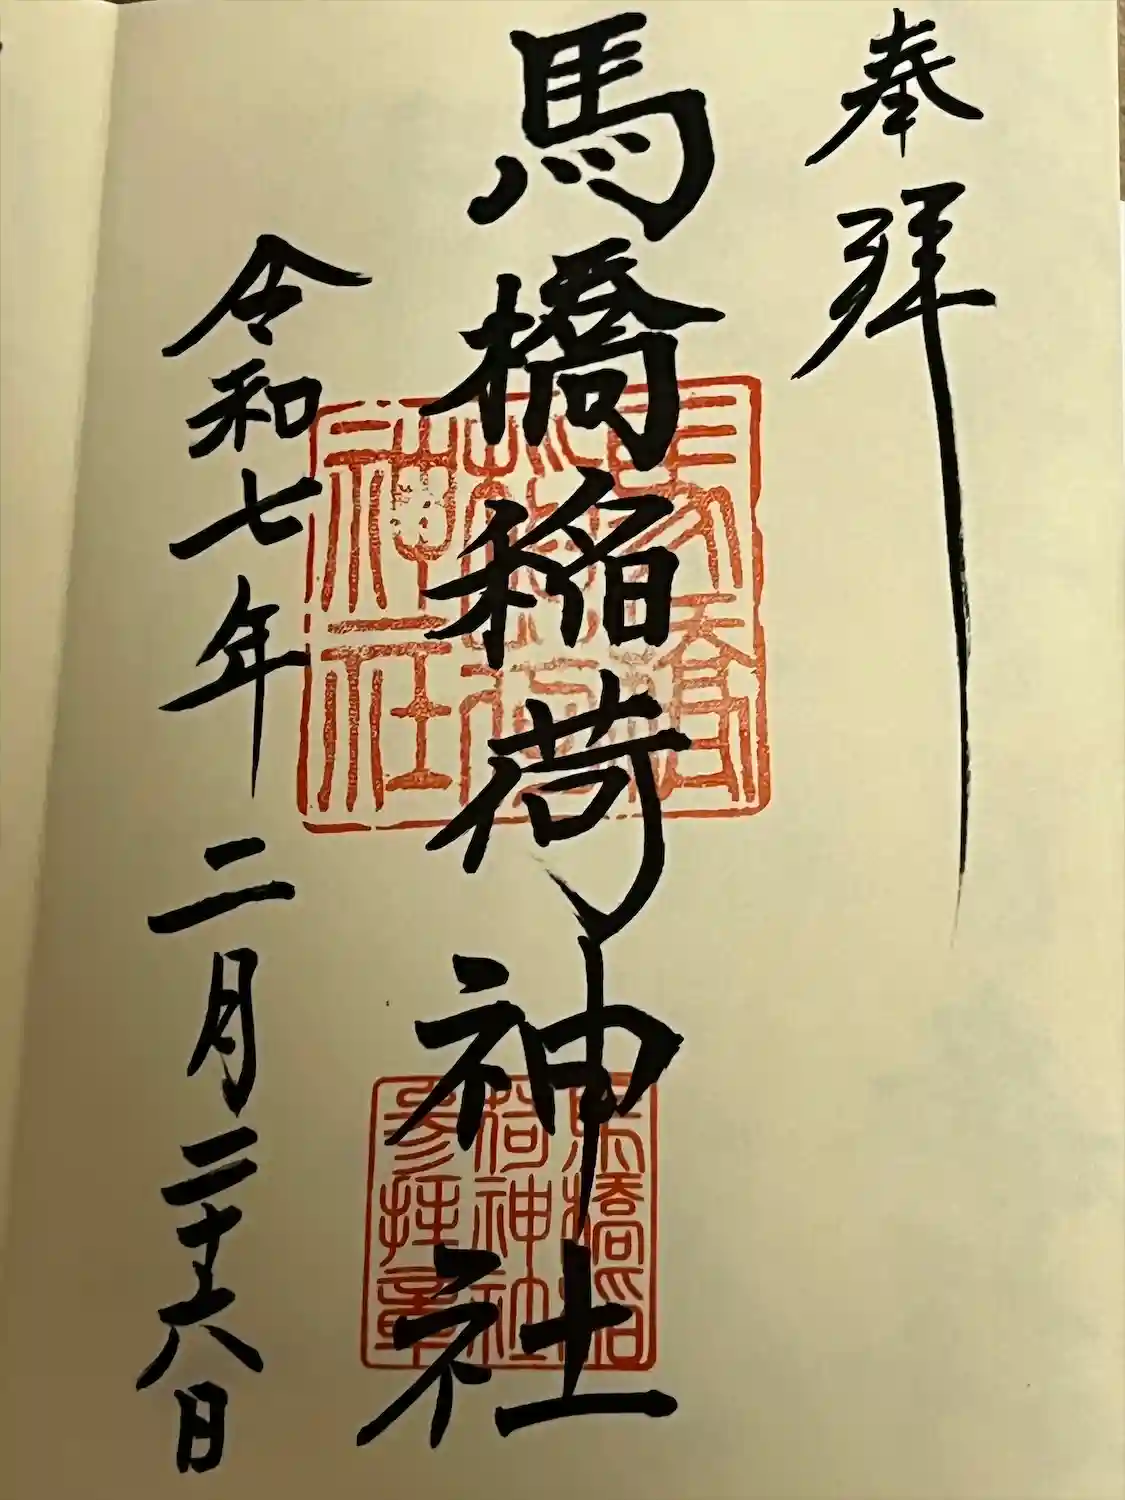 奉拜
馬橋稲荷神社
令和七年 二月二十六日
馬橋
稲荷
神社
馬橋稲
荷神社
参拝章